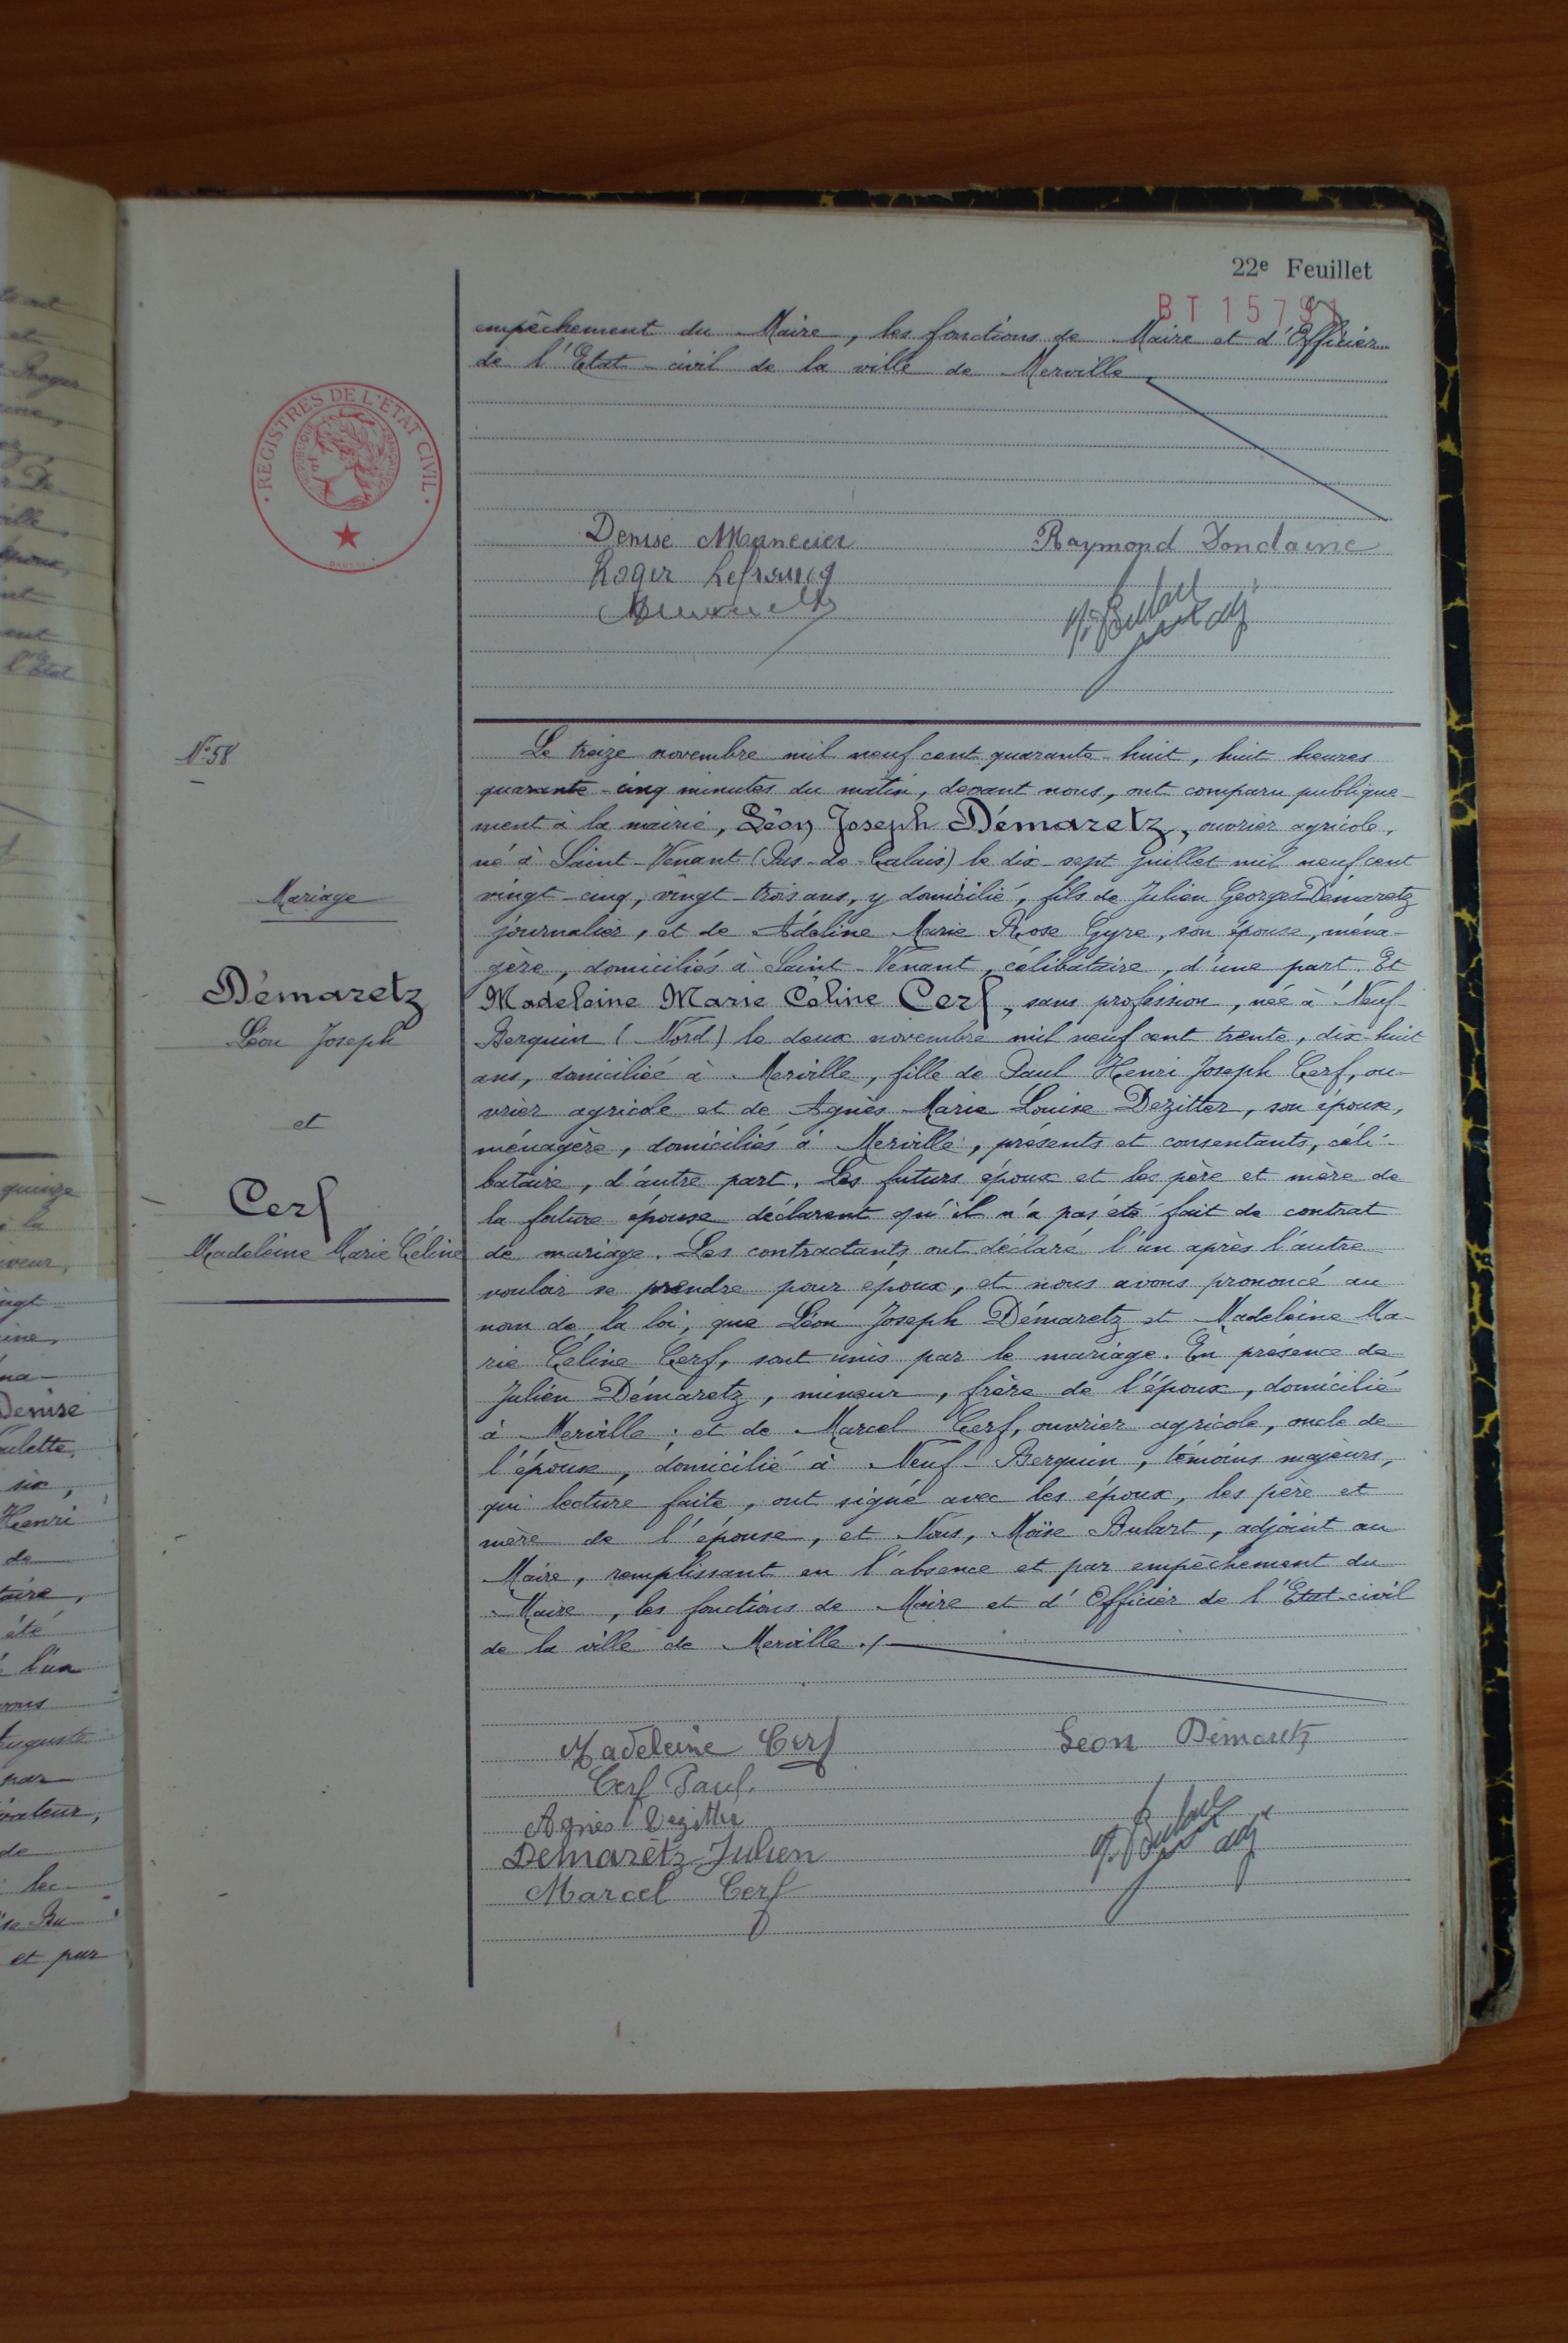 22e Feuillet
BT 15791
empêchement du Maire, les fonctions de Maire et d'Officier
de l'Etat-civil de la ville de Merville
REGISTRES DE L'ETAT CIVIL
Denise Manecier
Raymond Dondaine
Roger Lefrancq
adj
N° 58
Mariage
Démaretz
Léon Joseph
et
Cerf
Madeleine Marie Céline
Le treize novembre mil neuf cent quarante-huit, huit heures
quarante-cinq minutes du matin, devant nous, ont comparu publique-
ment à la mairie, Léon Joseph Démaretz, ouvrier agricole,
né à Saint-Venant (Pas-de-Calais) le dix-sept juillet mil neuf cent
vingt-cinq, vingt-trois ans, y domicilié, fils de Julien Georges Démaretz
journalier, et de Adéline Marie Rose Gyre, son épouse, ména-
gère, domiciliés à Saint-Venant, célibataire, d'une part. Et
Madeleine Marie Céline Cerf, sans profession, née à Neuf-
Berquin (Nord) le deux novembre mil neuf cent trente, dix-huit
ans, domiciliée à Merville, fille de Paul Henri Joseph Cerf, ou-
vrier agricole et de Agnès Marie Louise Dezitter, son épouse,
ménagère, domiciliés à Merville, présents et consentants, céli-
bataire, d'autre part. Les futurs époux et les père et mère de
la future épouse déclarent qu'il n'a pas été fait de contrat
de mariage. Les contractants ont déclaré l'un après l'autre
vouloir se prendre pour époux, et nous avons prononcé au
nom de la loi, que Léon Joseph Démaretz et Madeleine Ma-
rie Céline Cerf, sont unis par le mariage. En présence de
Julien Démaretz, mineur, frère de l'époux, domicilié
à Merville; et de Marcel Cerf, ouvrier agricole, oncle de
l'épouse, domicilié à Neuf-Berquin, témoins majeurs,
qui lecture faite, ont signé avec les époux, les père et
mère de l'épouse, et Nous, Moïse Bubart, adjoint au
Maire, remplissant en l'absence et par empêchement du
Maire, les fonctions de Maire et d'Officier de l'Etat-civil
de la ville de Merville ./
Madeleine Cerf
Léon Démaretz
Cerf Paul.
Agnès Dezitter
Demarètz Julien
adj
Marcel Cerf